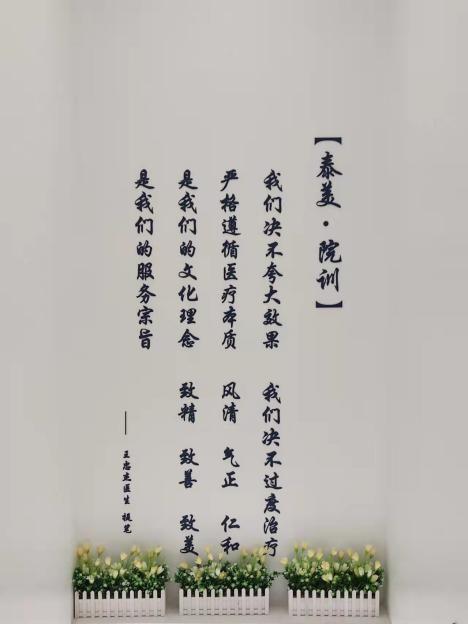 【泰美·院训】
我们决不夸大效果 我们决不过度治疗
严格遵循医疗本质 风清 气正 仁和
是我们的文化理念 致精 致善 致美
是我们的服务宗旨
——王忠杰医生 提笔